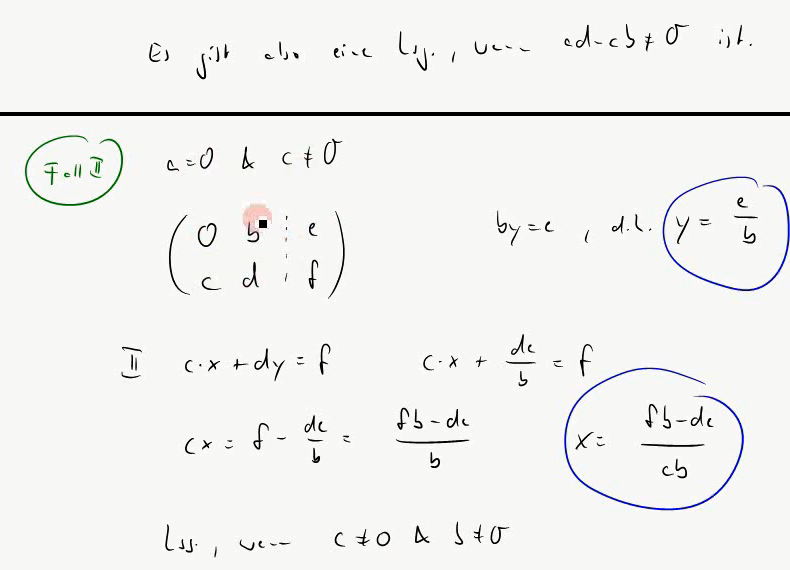 Es gibt also eine Lsg., wenn ad-cb≠0 ist.
Fall II a=0 & c≠0
( 0 b ⋮ e ) by=e , d.h. y = e/b
( c d ⋮ f )
II c·x+dy=f c·x + de/b = f
cx = f - de/b = (fb-de)/b x = (fb-de)/(cb)
Lsg., wenn c≠0 & b≠0